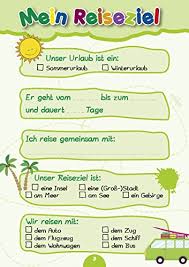 Mein Reiseziel
Unser Urlaub ist ein:
Sommerurlaub Winterurlaub
Er geht vom bis zum
und dauert Tage
Ich reise gemeinsam mit:
Unser Reiseziel ist:
eine Insel eine (Groß-)Stadt
am Meer am See ein Gebirge
Wir reisen mit:
dem Auto dem Zug
dem Flugzeug dem Schiff
dem Wohnwagen dem Bus
3